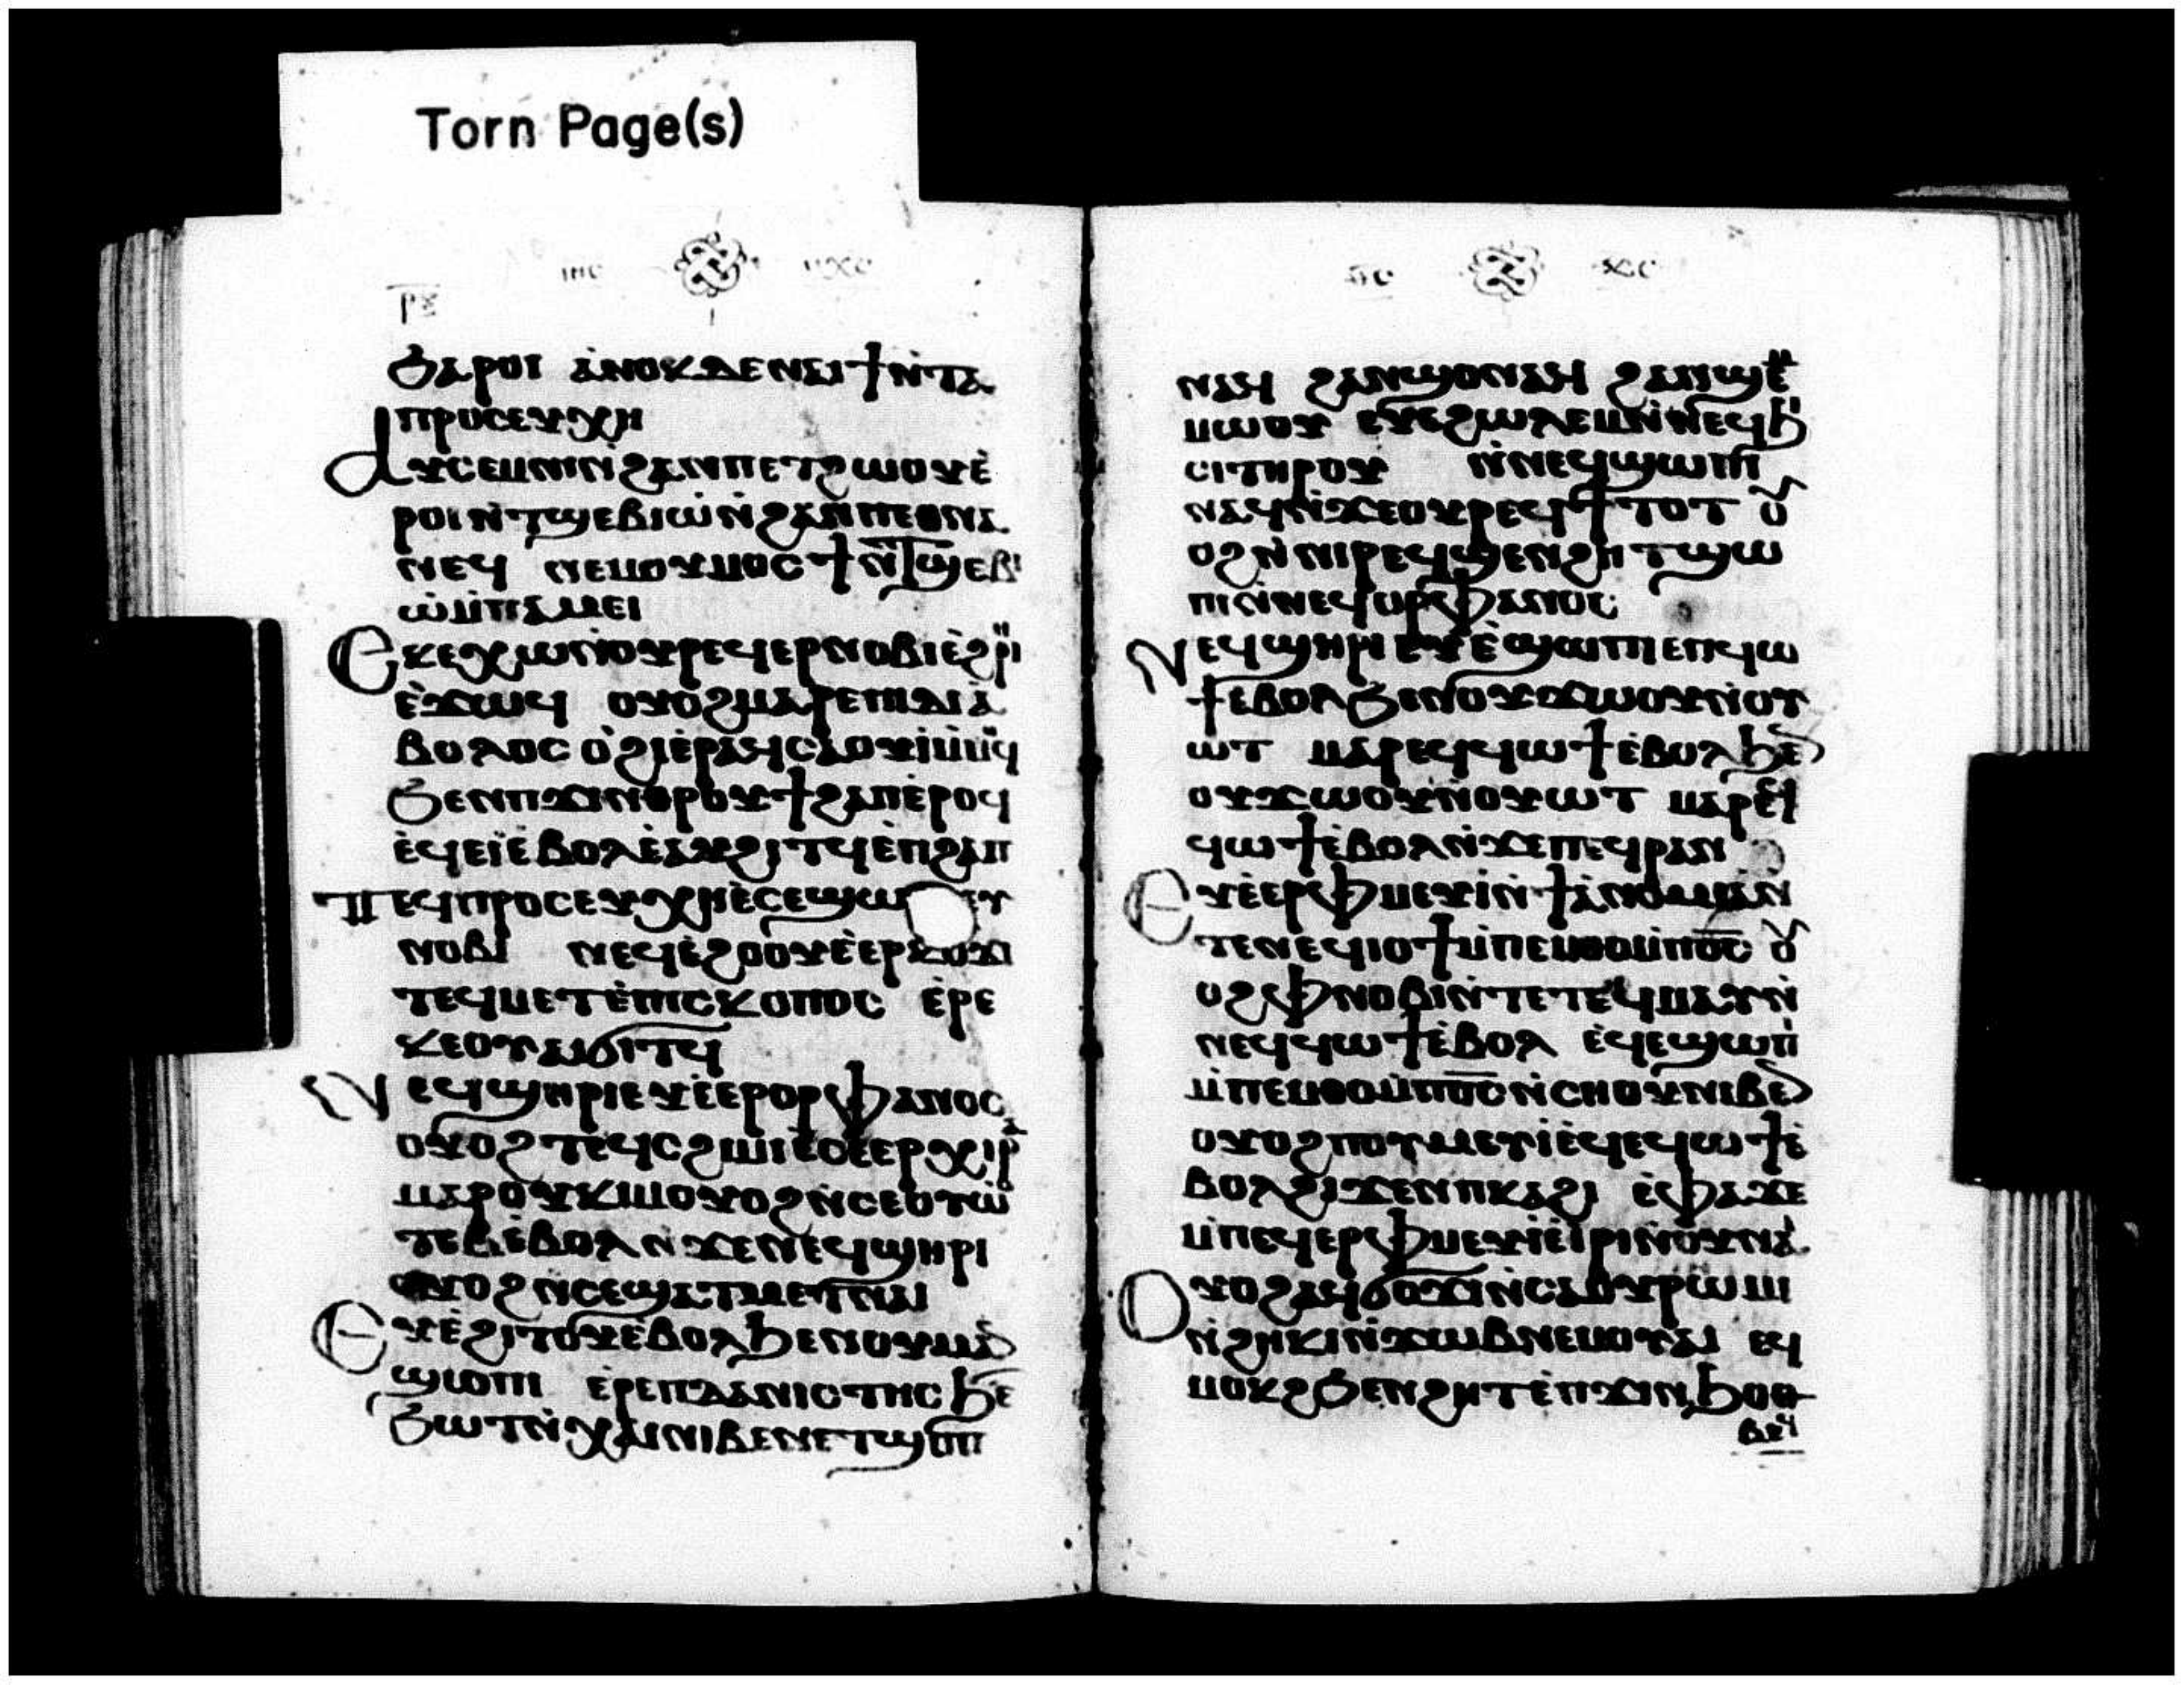 Torn Page(s)
ⲓⲏⲥ ⲡⲭⲥ
ϧⲁⲣⲟⲓ ⲁ̀ⲛⲟⲕⲇⲉⲛⲁⲓϯⲛ̀ⲧⲁ
ⲡⲣⲟⲥⲉⲩⲭⲏ
ⲁⲩⲥⲉⲙⲛⲓⲛ̀ϩⲁⲛⲡⲉⲧϩⲱⲟⲩⲉ̀
ⲣⲟⲓⲛ̀ⲧϣⲉⲃⲓⲱ̀ⲛ̀ϩⲁⲛⲡⲉⲑⲛⲁ
ⲛⲉϥ ⲛⲉⲙⲟⲩⲙⲟⲥϯⲛ̀ⲧϣⲉⲃⲓ
ⲱ̀ⲙ̀ⲡⲁⲙⲉⲓ
ⲉⲕⲉⲭⲱⲛ̀ⲟⲩⲣⲉϥⲉⲣⲛⲟⲃⲓⲉ̀ϩⲣⲏⲓ
ⲉ̀ϫⲱϥ ⲟⲩⲟϩⲙⲁⲣⲉⲡⲓⲇⲓⲁ̀
ⲃⲟⲗⲟⲥ ⲟ̀ϩⲓⲉ̀ⲣⲁⲧϥⲥⲁⲟⲩⲓ̀ⲛⲁⲙ ⲙ̀ⲙⲟϥ
ϧⲉⲛⲡϫⲓⲛⲑⲣⲟⲩϯϩⲁⲡⲉ̀ⲣⲟϥ
ⲉ̀ϥⲉⲓ̀ⲉ̀ⲃⲟⲗⲉ̀ⲁⲩϩⲓⲧϥⲉ̀ⲡϩⲁⲡ
ⲡⲉϥⲡⲣⲟⲥⲉⲩⲭⲏⲉ̀ⲥⲉϣⲱ ⲉⲩ
ⲛⲟⲃⲓ ⲛⲉϥⲉ̀ϩⲟⲟⲩⲉ̀ⲉⲣⲕⲟⲩϫⲓ
ⲧⲉϥⲙⲉⲧⲉ̀ⲡⲓⲥⲕⲟⲡⲟⲥ ⲉ̀ⲣⲉ
ⲕⲉⲟⲩⲁⲓϭⲓⲧϥ
ⲛⲉϥϣⲏⲣⲓⲉⲩⲉ̀ⲉⲣⲟⲣⲫⲁⲛⲟⲥ
ⲟⲩⲟϩ ⲧⲉϥⲥϩⲓⲙⲓⲉ̀ⲥⲉ̀ⲉⲣⲭⲏⲣⲁ
ⲙⲁⲣⲟⲩⲕⲓⲙⲟⲩⲟϩⲛ̀ⲥⲉⲟⲩⲱ
ⲧⲉⲃⲉ̀ⲃⲟⲗⲛ̀ϫⲉⲛⲉϥϣⲏⲣⲓ
ⲟⲩⲟϩⲛ̀ⲥⲉϣⲁⲧⲙⲉⲧⲛⲁⲓ
ⲉⲩⲉ̀ϩⲓⲧⲟⲩⲉ̀ⲃⲟⲗϧⲉⲛⲟⲩⲙⲁⲛ
ϣⲱⲡⲓ ⲉ̀ⲣⲉⲡⲇⲁⲛⲓⲥⲧⲏⲥ ϧⲉ
ϧⲱⲧⲛ̀ⲭⲁⲓⲛⲓⲃⲉⲛⲉⲧϣⲟⲡ
ⲓⲥ ⲭⲥ
ⲛⲁϥ ϩⲁⲛϣⲟⲛⲁϥ ϩⲁⲛϣⲉⲙ
ⲙⲱⲟⲩ ⲉⲩⲉϩⲱⲗⲉⲙⲛ̀ⲛⲉϥϧⲓ
ⲥⲓⲧⲏⲣⲟⲩ ⲛ̀ⲛⲉϥϣⲱⲡⲓ
ⲛⲁϥⲛ̀ϫⲉⲟⲩⲣⲉϥϯⲧⲟⲧ ⲟⲩ
ⲟϩⲛ̀ⲛⲓⲣⲉϥϣⲉⲛϩⲏⲧϣⲱ
ⲡⲓⲛ̀ⲛⲉϥⲟⲣⲫⲁⲛⲟⲥ
ⲛⲉϥϣⲏⲣⲓⲉⲩⲉ̀ϣⲱⲡⲓⲉⲡϥⲱ
ϯⲉⲃⲟⲗϧⲉⲛⲟⲩϫⲱⲟⲩⲛ̀ⲟⲩ
ⲱⲧ ⲙⲁⲣⲉϥϥⲱϯⲉ̀ⲃⲟⲗϧⲉⲛ
ⲟⲩϫⲱⲟⲩⲛ̀ⲟⲩⲱⲧ ⲙⲁⲣⲉϥ
ϥⲱϯⲉ̀ⲃⲟⲗⲛ̀ϫⲉⲡⲉϥⲣⲁⲛ
ⲉⲩⲉ̀ⲉⲣⲫⲙⲉⲩⲓ̀ⲛ̀ϯⲁ̀ⲛⲟⲙⲓⲁⲛ̀
ⲧⲉⲛⲉϥⲓⲟϯⲙ̀ⲡⲉⲙⲑⲟⲙ̀ⲡⲟⲥ ⲟⲩ
ⲟϩⲫⲛⲟⲃⲓⲛ̀ⲧⲉⲧⲉϥⲙⲁⲩⲛ̀
ⲛⲉϥϥⲱϯⲉ̀ⲃⲟⲗ ⲉ̀ϥⲉϣⲱⲡⲓ
ⲙ̀ⲡⲉⲙⲑⲟⲙ̀ⲡⲟⲥⲛ̀ⲥⲏⲟⲩⲛⲓⲃⲉⲛ
ⲟⲩⲟϩⲡⲟⲩⲙⲉⲩⲓ̀ⲉ̀ϥⲉϥⲱϯⲉ̀
ⲃⲟⲗϩⲓϫⲉⲛⲡⲕⲁϩⲓ ⲉ̀ⲫⲁϫⲉ
ⲙ̀ⲡⲉϥⲉⲣⲫⲙⲉⲩⲓ̀ⲉ̀ⲓⲣⲓⲛ̀ⲟⲩⲛⲁⲓ
ⲟⲩⲟϩⲁϥϭⲟϫⲓⲛ̀ⲥⲁⲟⲩⲣⲱⲙⲓ
ⲛ̀ϩⲏⲕⲓⲛ̀ϫⲱⲃⲛⲉⲙⲟⲩⲁⲓ ⲉϥ
ⲙⲟⲕϩϧⲉⲛϩⲏⲧⲉ̀ⲡϫⲓⲛϧⲟⲑ
ⲃⲉϥ